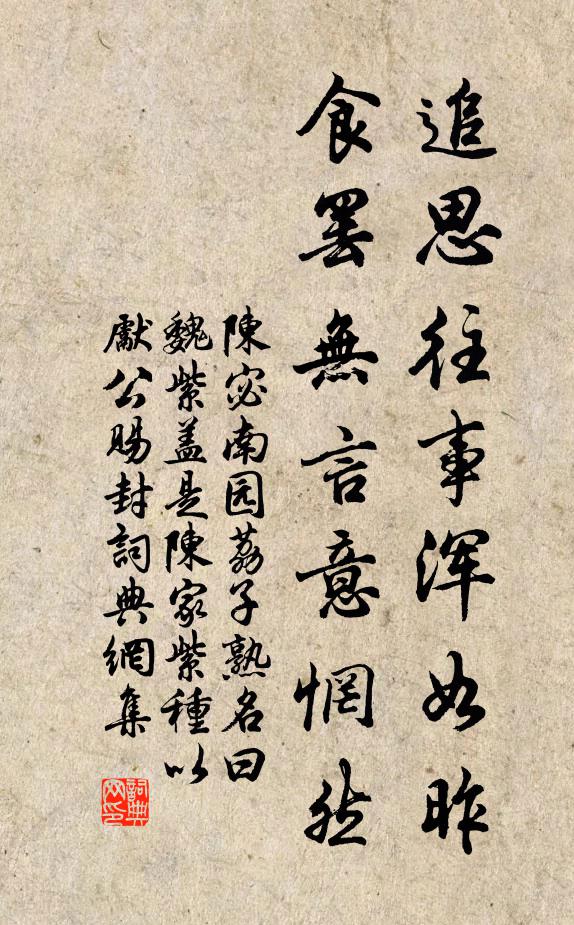 追思往事浑如昨
食罢無言意惘然
陳宓南园荔子熟名曰
魏紫盖是陳家紫種以
獻公賜封詞典網集
詞典网印